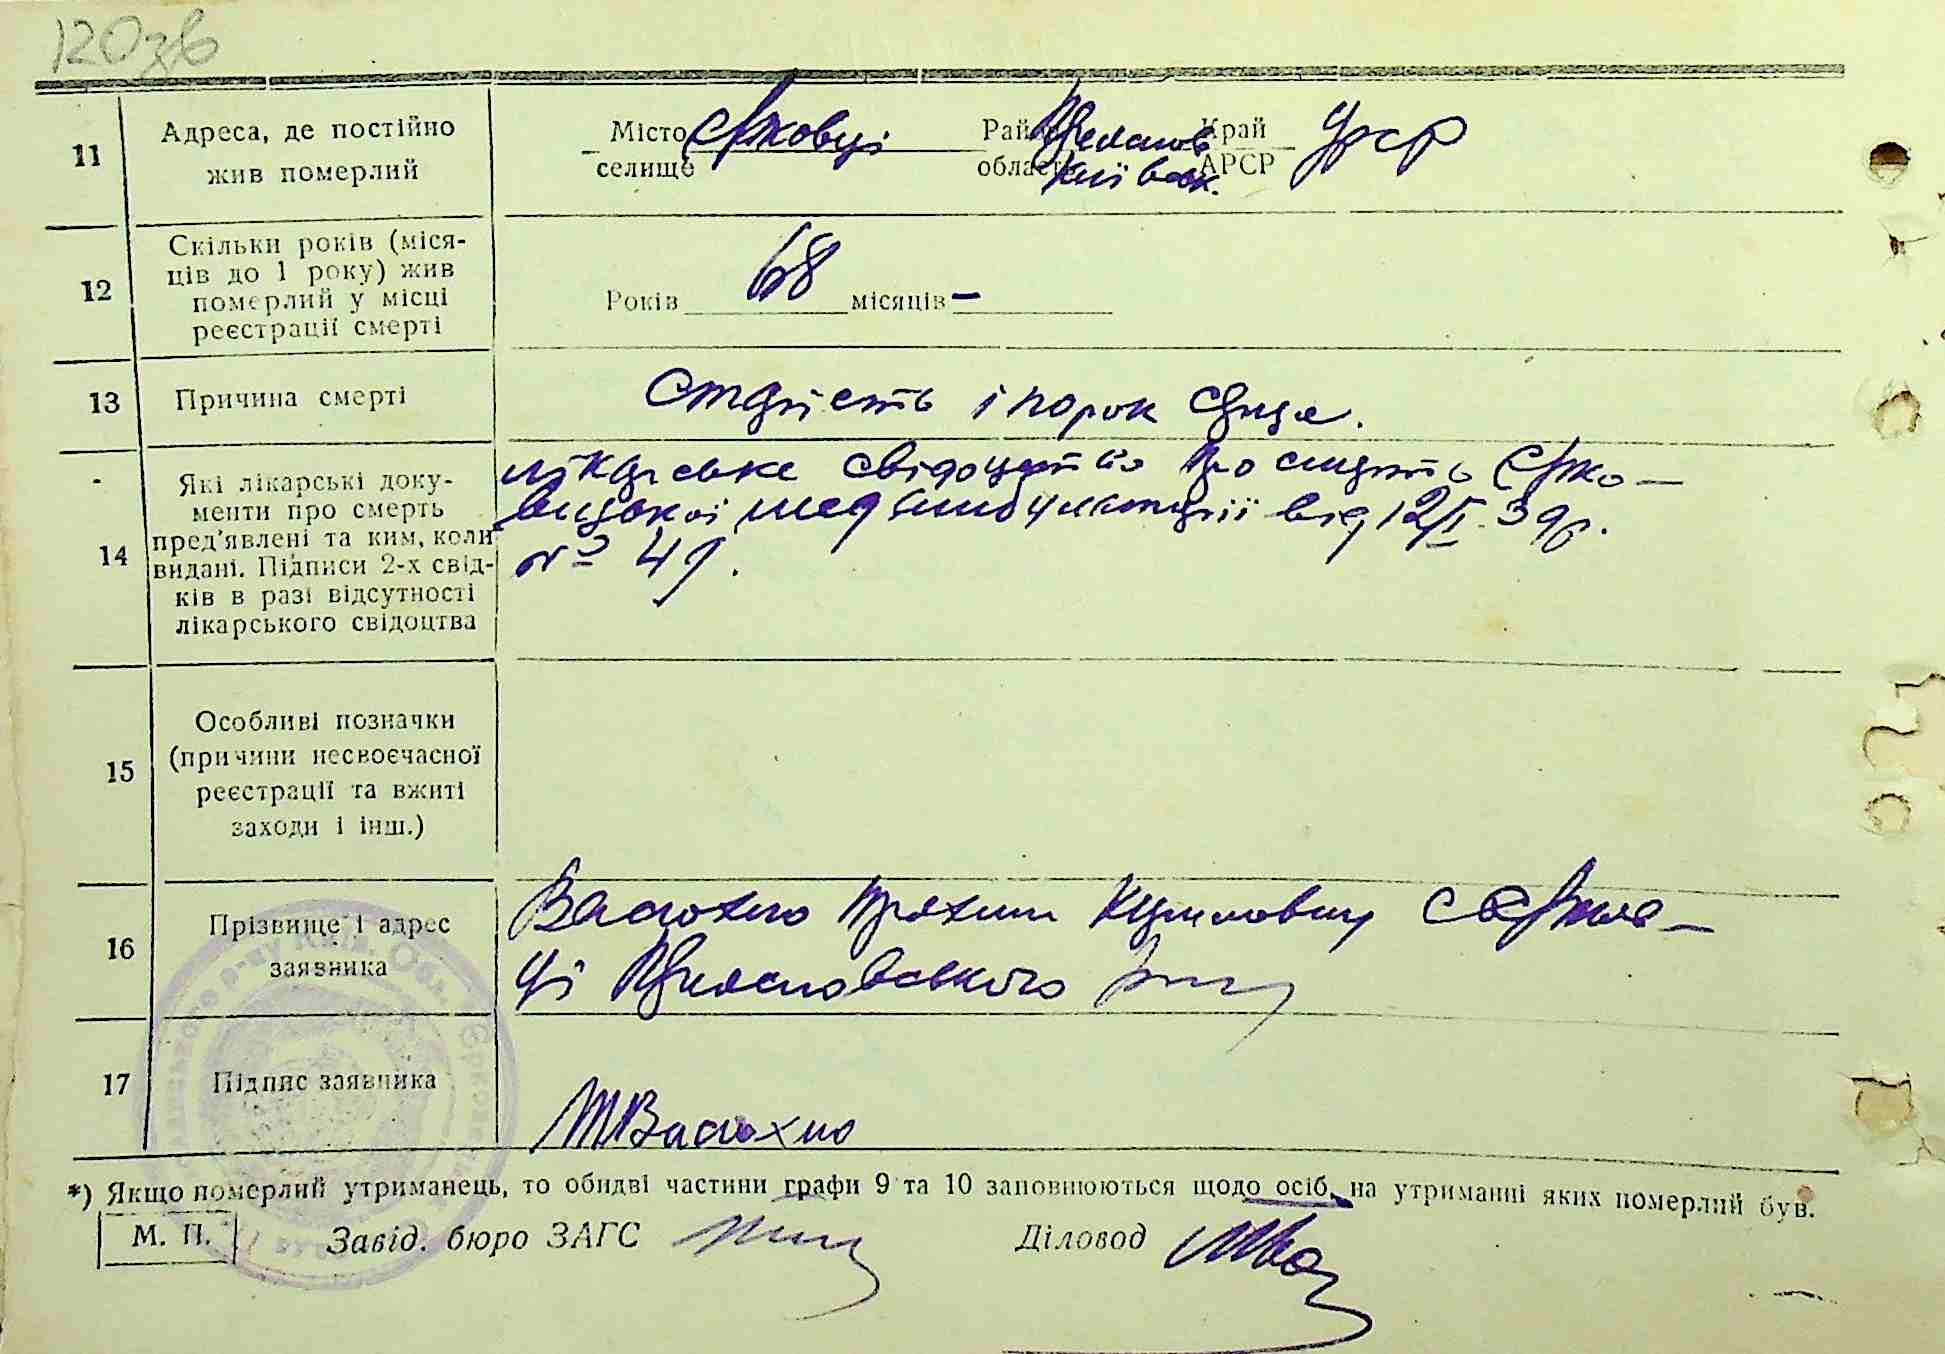 120зв
11
Адреса, де постійно
жив померлий
Місто Єрковці Район Край УРСР
селище область Київськ. АРСР
12
Скільки років (міся-
ців до 1 року) жив
померлий у місці
реєстрації смерті
Років 68 місяців –
13
Причина смерті
Старість і порок серця.
14
Які лікарські доку-
менти про смерть
пред'явлені та ким, коли
видані. Підписи 2-х свід-
ків в разі відсутності
лікарського свідоцтва
лікарське свідоцтво про смерть Єрко-
вецької медамбулаторії від 12/I 39р.
№ 49.
15
Особливі позначки
(причини несвоєчасної
реєстрації та вжиті
заходи і інш.)
16
Прізвище і адрес
заявника
Васюхно с Єрков-
ці
17
Підпис заявника
Васюхно
*) Якщо померлий утриманець, то обидві частини графи 9 та 10 заповнюються щодо осіб, на утриманні яких померлий був.
М. П. Завід. бюро ЗАГС Діловод